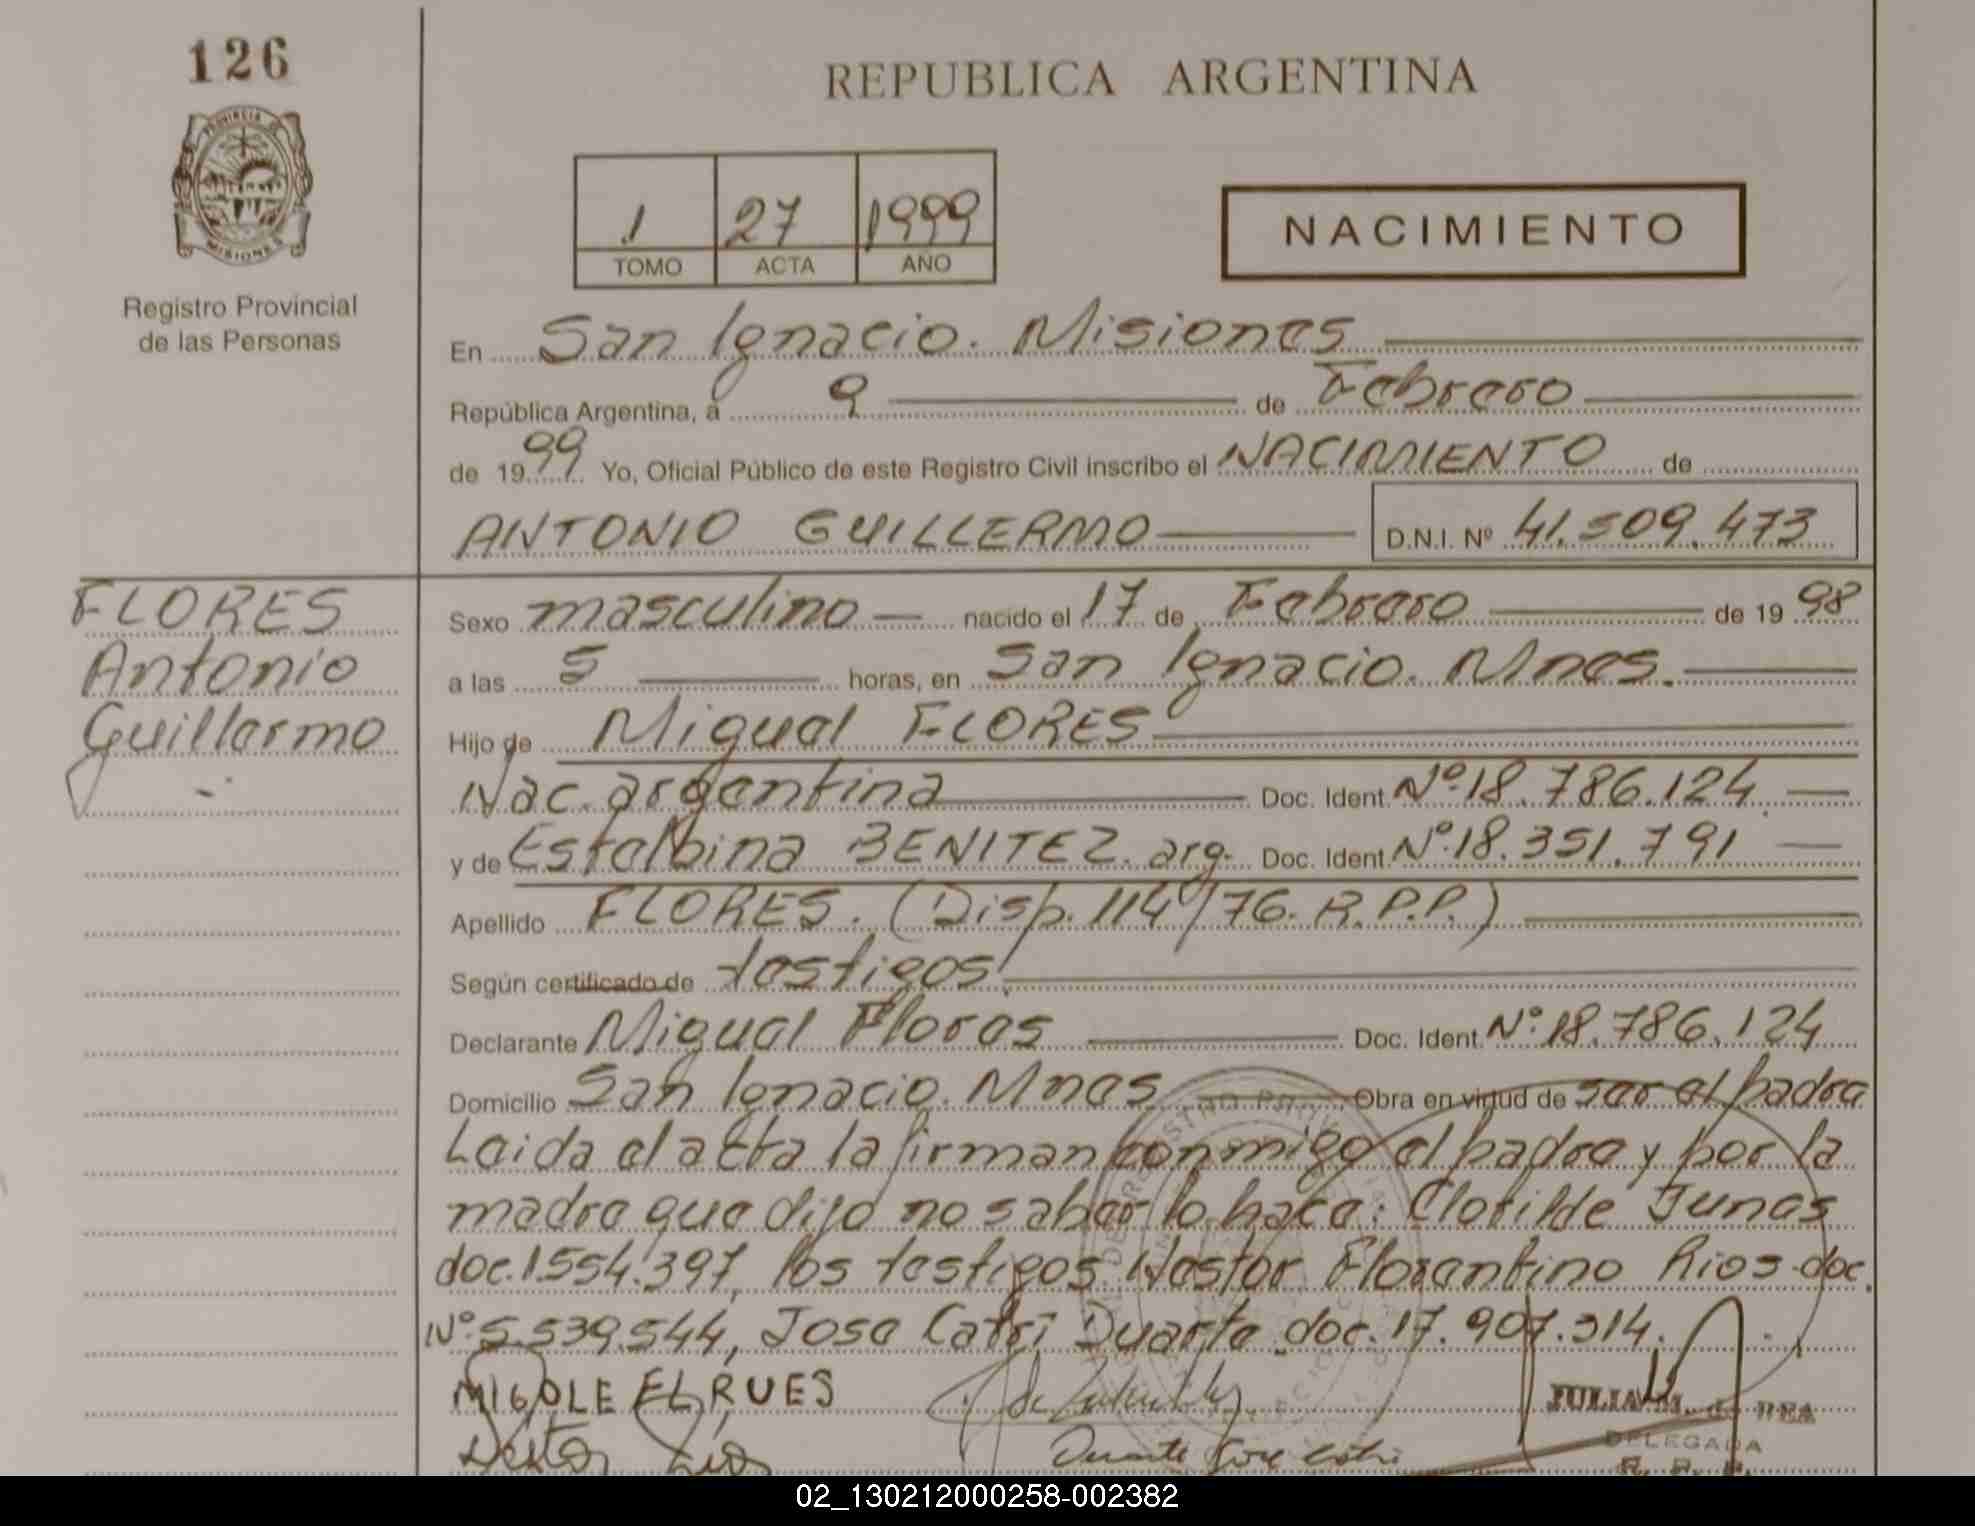 126
REPUBLICA ARGENTINA
PROVINCIA DE
MISIONES
1 27 1999
TOMO ACTA AÑO
NACIMIENTO
Registro Provincial
de las Personas
En San Ignacio. Misiones
República Argentina, a 9 de Febrero
de 1999 Yo, Oficial Público de este Registro Civil inscribo el NACIMIENTO de
ANTONIO GUILLERMO D.N.I. Nº 41.509.473
FLORES
Antonio
Guillermo
Sexo masculino nacido el 17 de Febrero de 1998
a las 5 horas, en San Ignacio. Mnes.
Hijo de Miguel FLORES
Nac. argentina Doc. Ident. Nº 18.786.124
y de Estelbina BENITEZ. arg. Doc. Ident. Nº 18.351.791
Apellido FLORES. (Disp. 114/76. R.P.P.)
Según certificado de testigos
Declarante Miguel Flores Doc. Ident. Nº 18.786.124
Domicilio San Ignacio. Mnes Obra en virtud de ser el padre
Leida el acta la firman conmigo el padre y por la
madre que dijo no saber lo hace: Clotilde Junes
doc. 1.554.397, los testigos Nestor Florentino Rios doc.
Nº 5.539.544, Jose Catri Duarte doc. 17.907.314.
MIGOLE FLRUES
JULIA M. de REA
Nestor Rios
Duarte Jose Catri
DELEGADA
R. P. P.
02_130212000258-002382